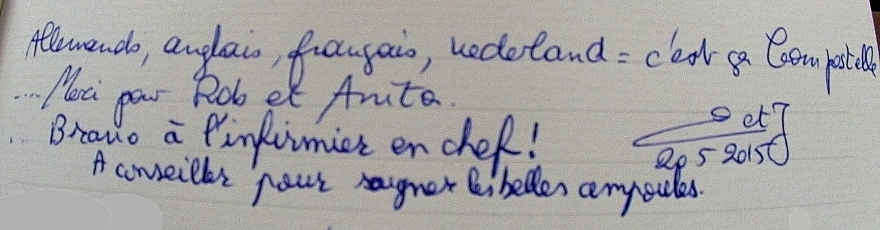 Allemands, anglais, français, nederland = c'est ça Compostelle
... Merci pour Rob et Anita.
... Bravo à l'infirmier en chef!
A conseiller pour soigner les belles ampoules.
et J
20 5 2015